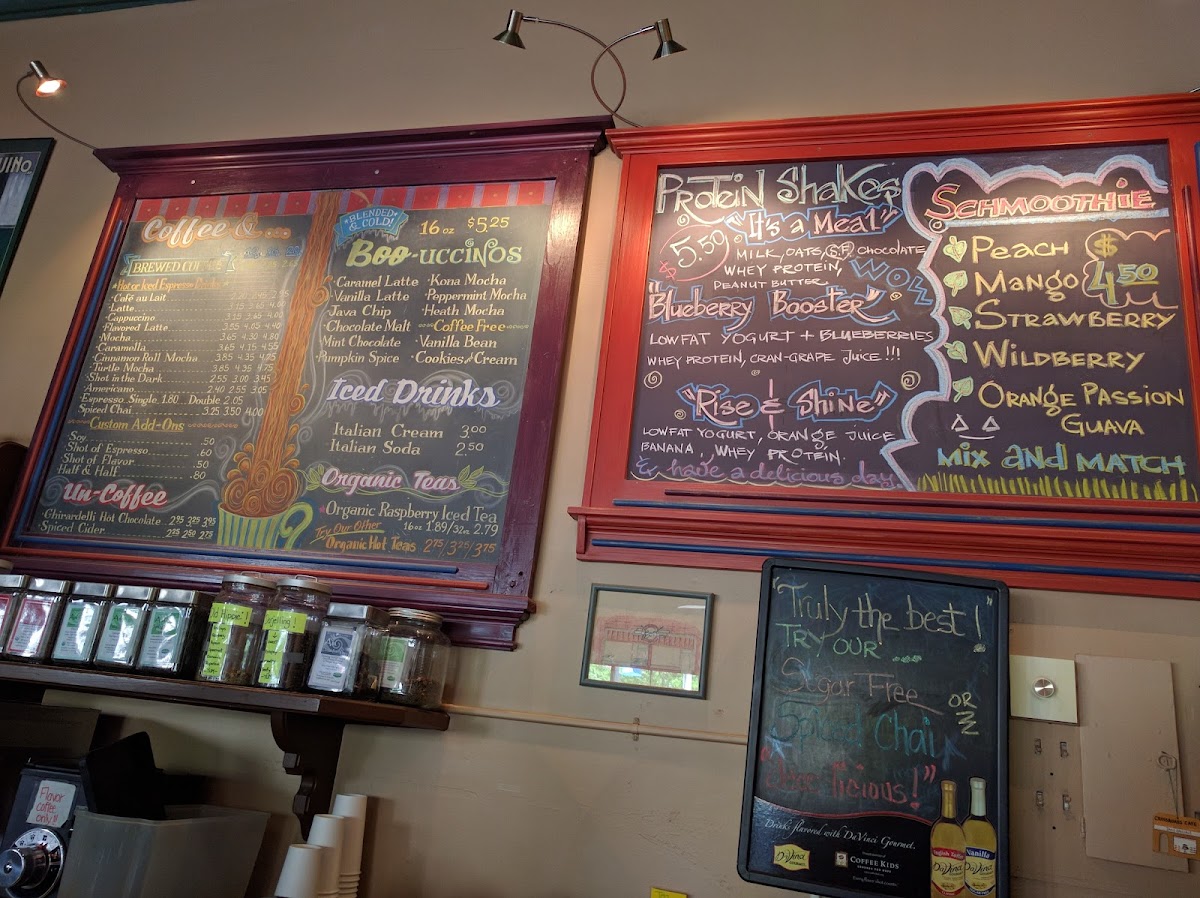 UINO,
Coffee &...
BREWED CO
Hot or Iced Espresso Drinks
Café au Lait
Latte
Cappuccino 3.15 3.65 4.00
Flavored Latte 3.85 4.05 4.40
Mocha 3.65 4.30 4.80
Caramella 3.65 4.15 4.55
Cinnamon Roll Mocha 3.85 4.35
Turtle Mocha 3.85 4.35
Shot in the Dark 2.55 3.00 3.45
Americano 2.40 2.55 3.05
Espresso Single 1.80 Double 2.05
Spiced Chai 3.25 3.50 4.00
Custom Add-Ons
Soy .50
Shot of Espresso .60
Shot of Flavor .50
Half & Half .80
Un-Coffee
Ghirardelli Hot Chocolate 2.95 3.25 3.95
Spiced Cider 2.25 2.50 2.75
BLENDED & COLD!
16 oz $5.25
Boo-uccinos
·Caramel Latte ·Kona Mocha
·Vanilla Latte ·Peppermint Mocha
·Java Chip ·Heath Mocha
·Chocolate Malt Coffee Free
·Mint Chocolate ·Vanilla Bean
·Pumpkin Spice ·Cookies and Cream
Iced Drinks
Italian Cream 3.00
Italian Soda 2.50
Organic Teas
Organic Raspberry Iced Tea
16oz 1.89/32oz 2.79
Try Our Other
Organic Hot Teas 2.75/3.25/3.75
Protein Shakes
"It's a Meal"
$5.59
MILK, OATS, S.F. CHOCOLATE
WHEY PROTEIN,
PEANUT BUTTER
WOW
"Blueberry Booster"
LOWFAT YOGURT + BLUEBERRIES
WHEY PROTEIN, CRAN-GRAPE JUICE!!!
"Rise & Shine"
LOWFAT YOGURT, ORANGE JUICE
BANANA, WHEY PROTEIN.
& have a delicious day
SCHMOOTHIE
PEACH
$4.50
MANGO
STRAWBERRY
WILDBERRY
ORANGE PASSION
GUAVA
MIX and MATCH
"Truly the best!
TRY OUR ....
Sugar Free
OR
Spiced Chai
licious!"
Drinks flavored with DaVinci Gourmet.
DaVinci
COFFEE KIDS
DaVinci
Vanilla
DaVinci
Flavor
coffee
only!!